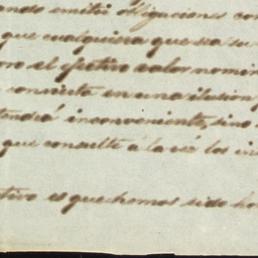 ando emitir obligaciones con
que cualquiera que sea su
oro el efectivo valor nomin
convierte en una ilusion
tendrá inconveniente, sino
que consulte á la vez los in
tivo es que hemos sido ho